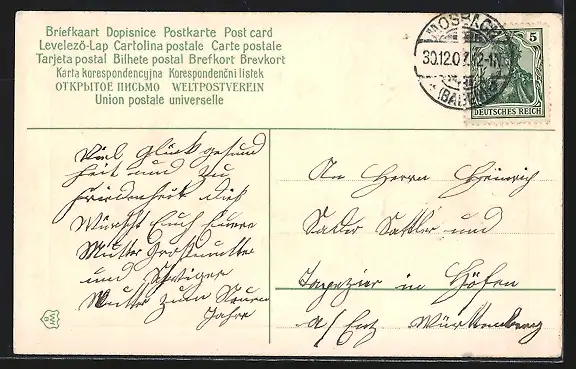 Briefkaart Dopisnice Postkarte Post card
Levelező-Lap Cartolina postale Carte postale
Tarjeta postal Bilhete postal Brefkort Brevkort
Karta korespondencyjna Korespondenční listek
ОТКРЫТОЕ ПИСЬМО WELTPOSTVEREIN
Union postale universelle
MOSBACH
30.12.07 12-1
(BADEN)
5
DEUTSCHES REICH
Viel Glück gesund
heit und zu
friedenheit dies
Wünscht Euch Eure
Mutter Großmutter
und
Mutter zum Neuen
Jahre
An Herrn Heinrich
Sattler und
Tapezier in Höfen
a/Enz Württemberg